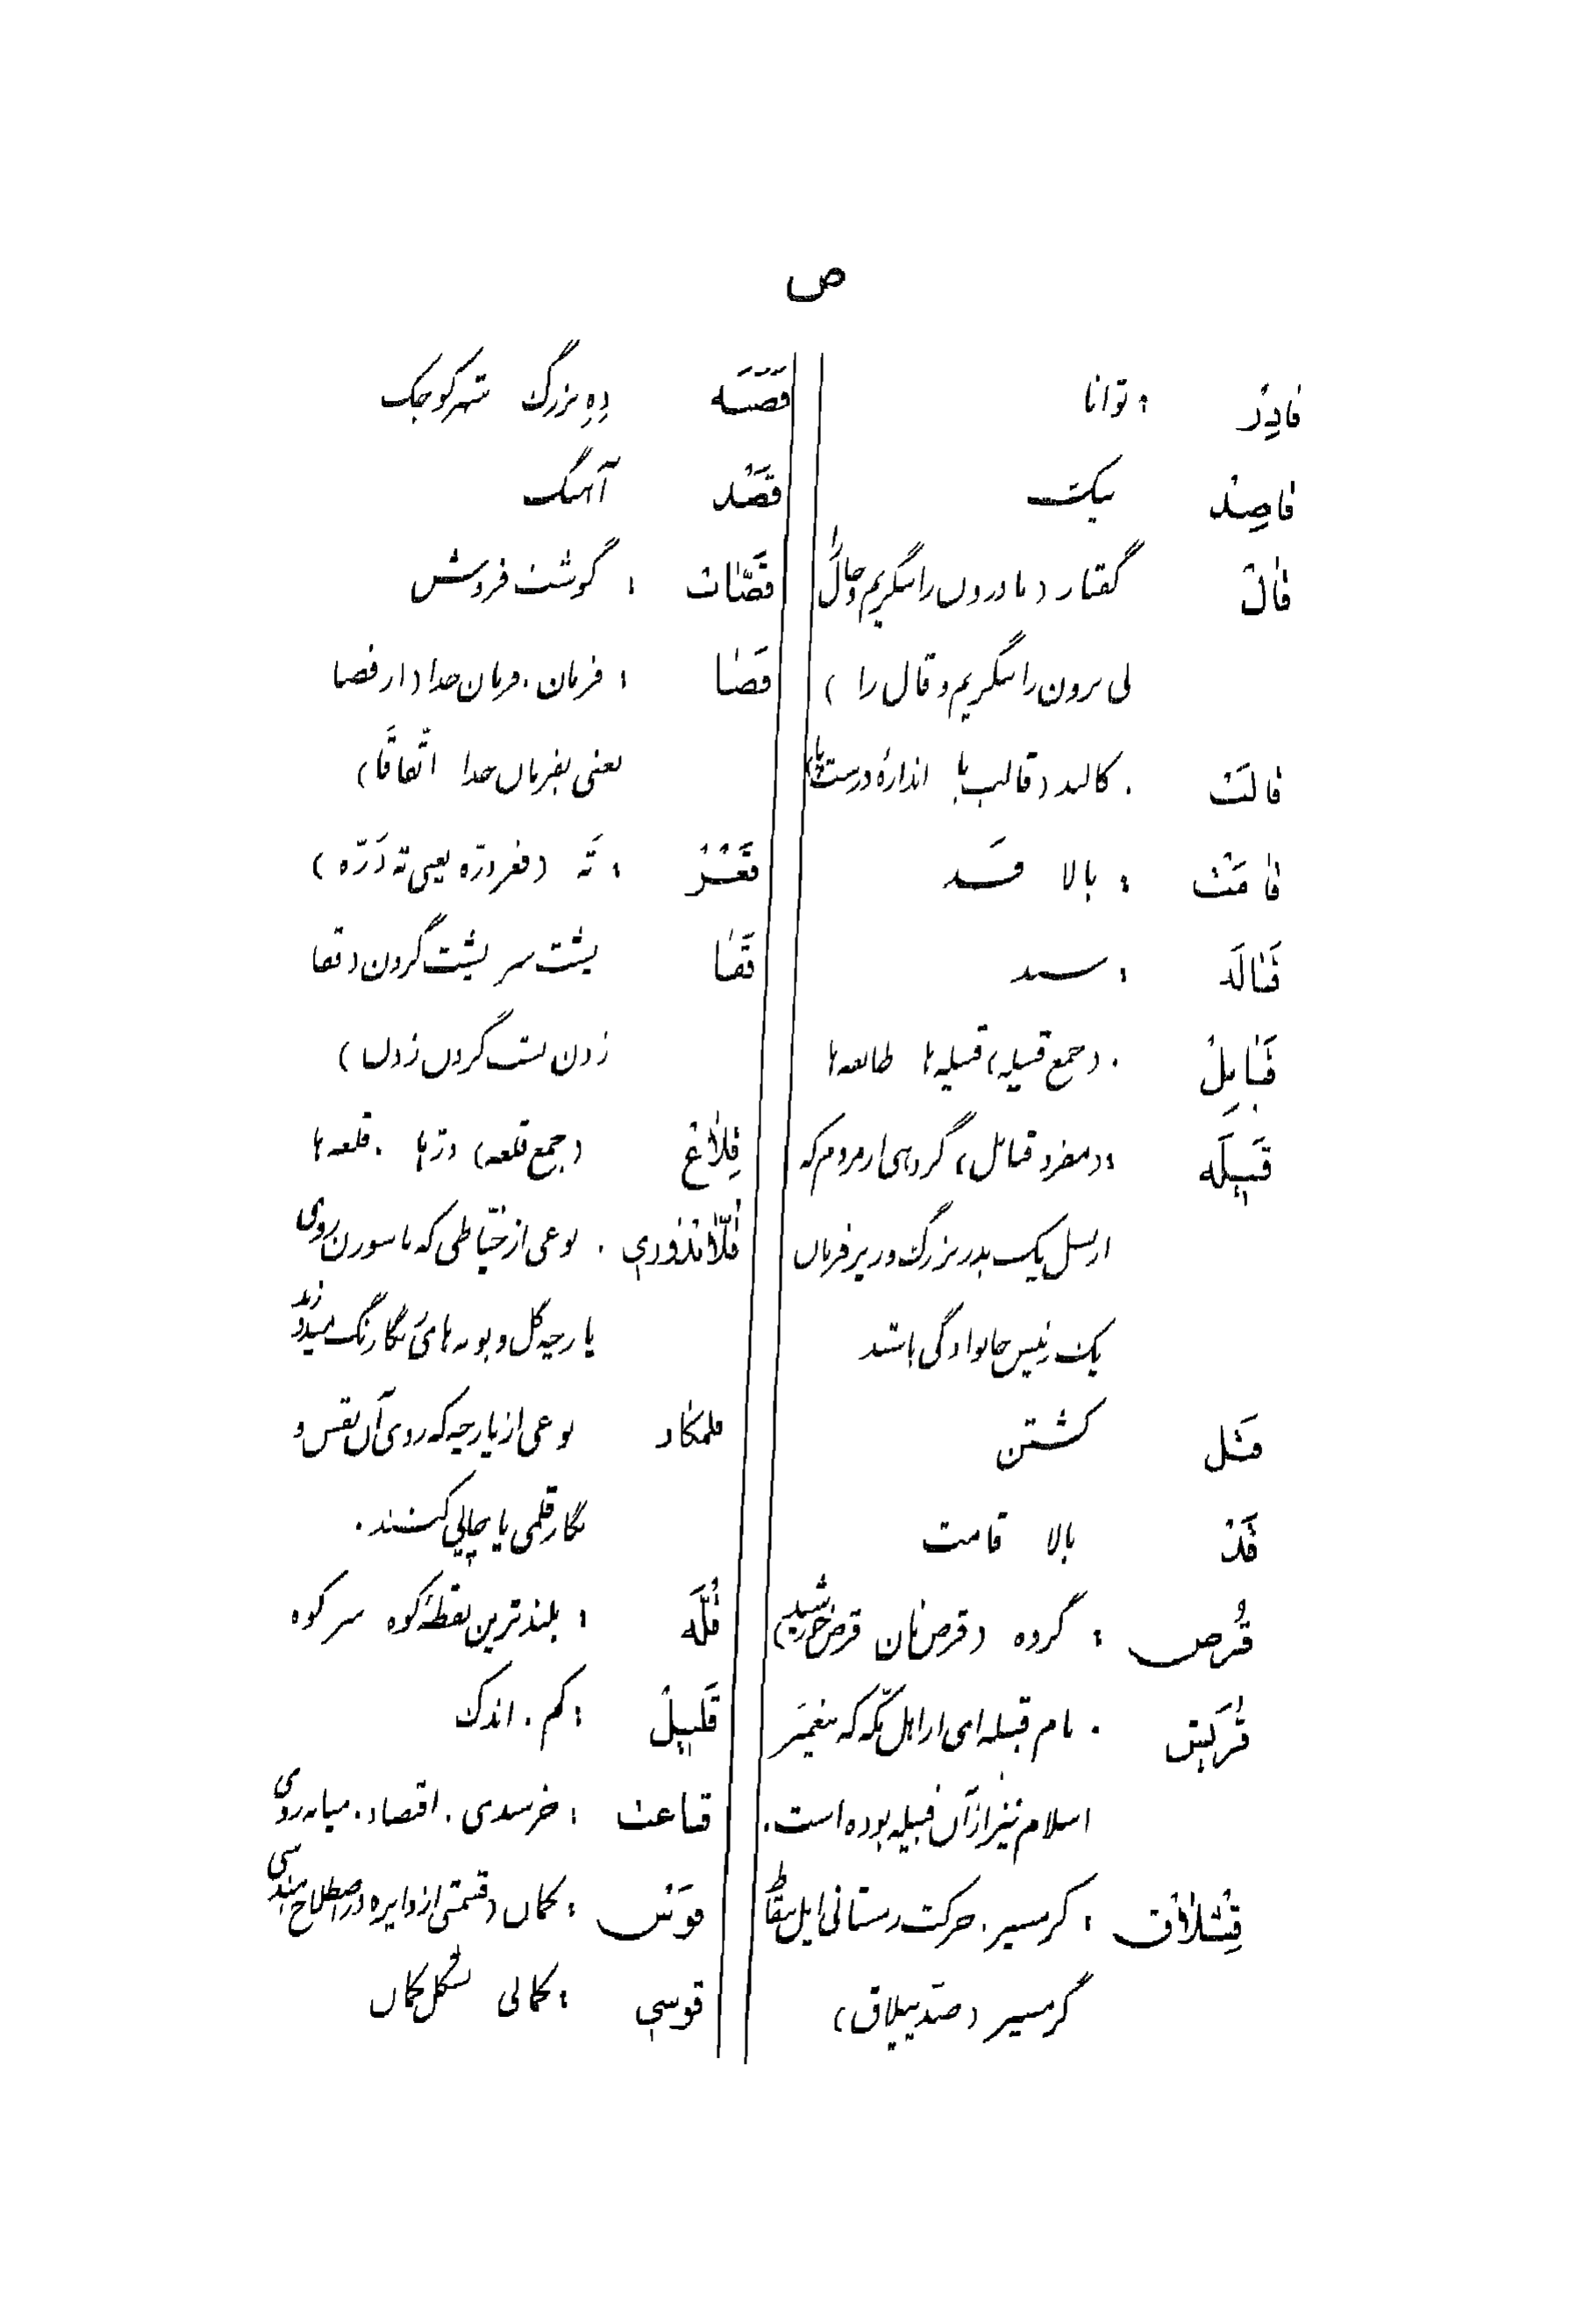 ص
قادِرْ : توانا
قاصِدْ پیک
قالْ گفتار (ما درون را بنگریم و حال را
نی برون را بنگریم و قال را)
قالَبْ . کالبد (قالب پا اندازهٔ درست پا)
قامَتْ : بالا قَد
قَبالَه : سند
قَبایِلْ . (جمع قبیله) قبیله‌ها طایعه‌ها
قَبیلَه : (مفرد قبایل) گروهی از مردم که
از نسل یک پدر بزرگ و زیر فرمان
یک رئیس خانوادگی باشند
قَتل کشتن
قَدْ بالا قامت
قُرص : گرده (قرص نان قرص خورشید)
قُرَیش . نام قبیله‌ای از اهل مکّه که پیغمبَر
اسلام نیز از آن قبیله بوده است.
قِشْلاق : گرمسیر. حرکت زمستانی ایل بنقاط
گرمسیر (ضد ییلاق)
قَصَبَه دِهِ بزرگ شهر کوچک
قَصْد آهنگ
قَصّاب : گوشت فروش
قَضا : فرمان. فرمان خدا (از قضا
یعنی بفرمان خدا اتّفاقًا)
قَعْرْ : تَه (قعر درّه یعنی ته دَرّه)
قَفا پشت سر پشت گردن (قفا
زدن پشت گردن زدن)
قِلاعْ (جمع قلعه) دژها . قلعه‌ها
قُلّابْدُوزی . نوعی از خیّاطی که با سوزن روی
پارچه گل و بوته‌های رنگارنگ میدوزند
قلمکار نوعی از پارچه که روی آن نقش و
نگار قلمی یا چاپی کنند.
قُلَّه : بلندترین نقطهٔ کوه سر کوه
قَلیلْ : کم. اندک
قناعت : خرسندی. اقتصاد. میانه روی
قَوْس : کمان (قسمتی از دایره در اصطلاح هندسی
قوسی : کمانی بشکل کمان